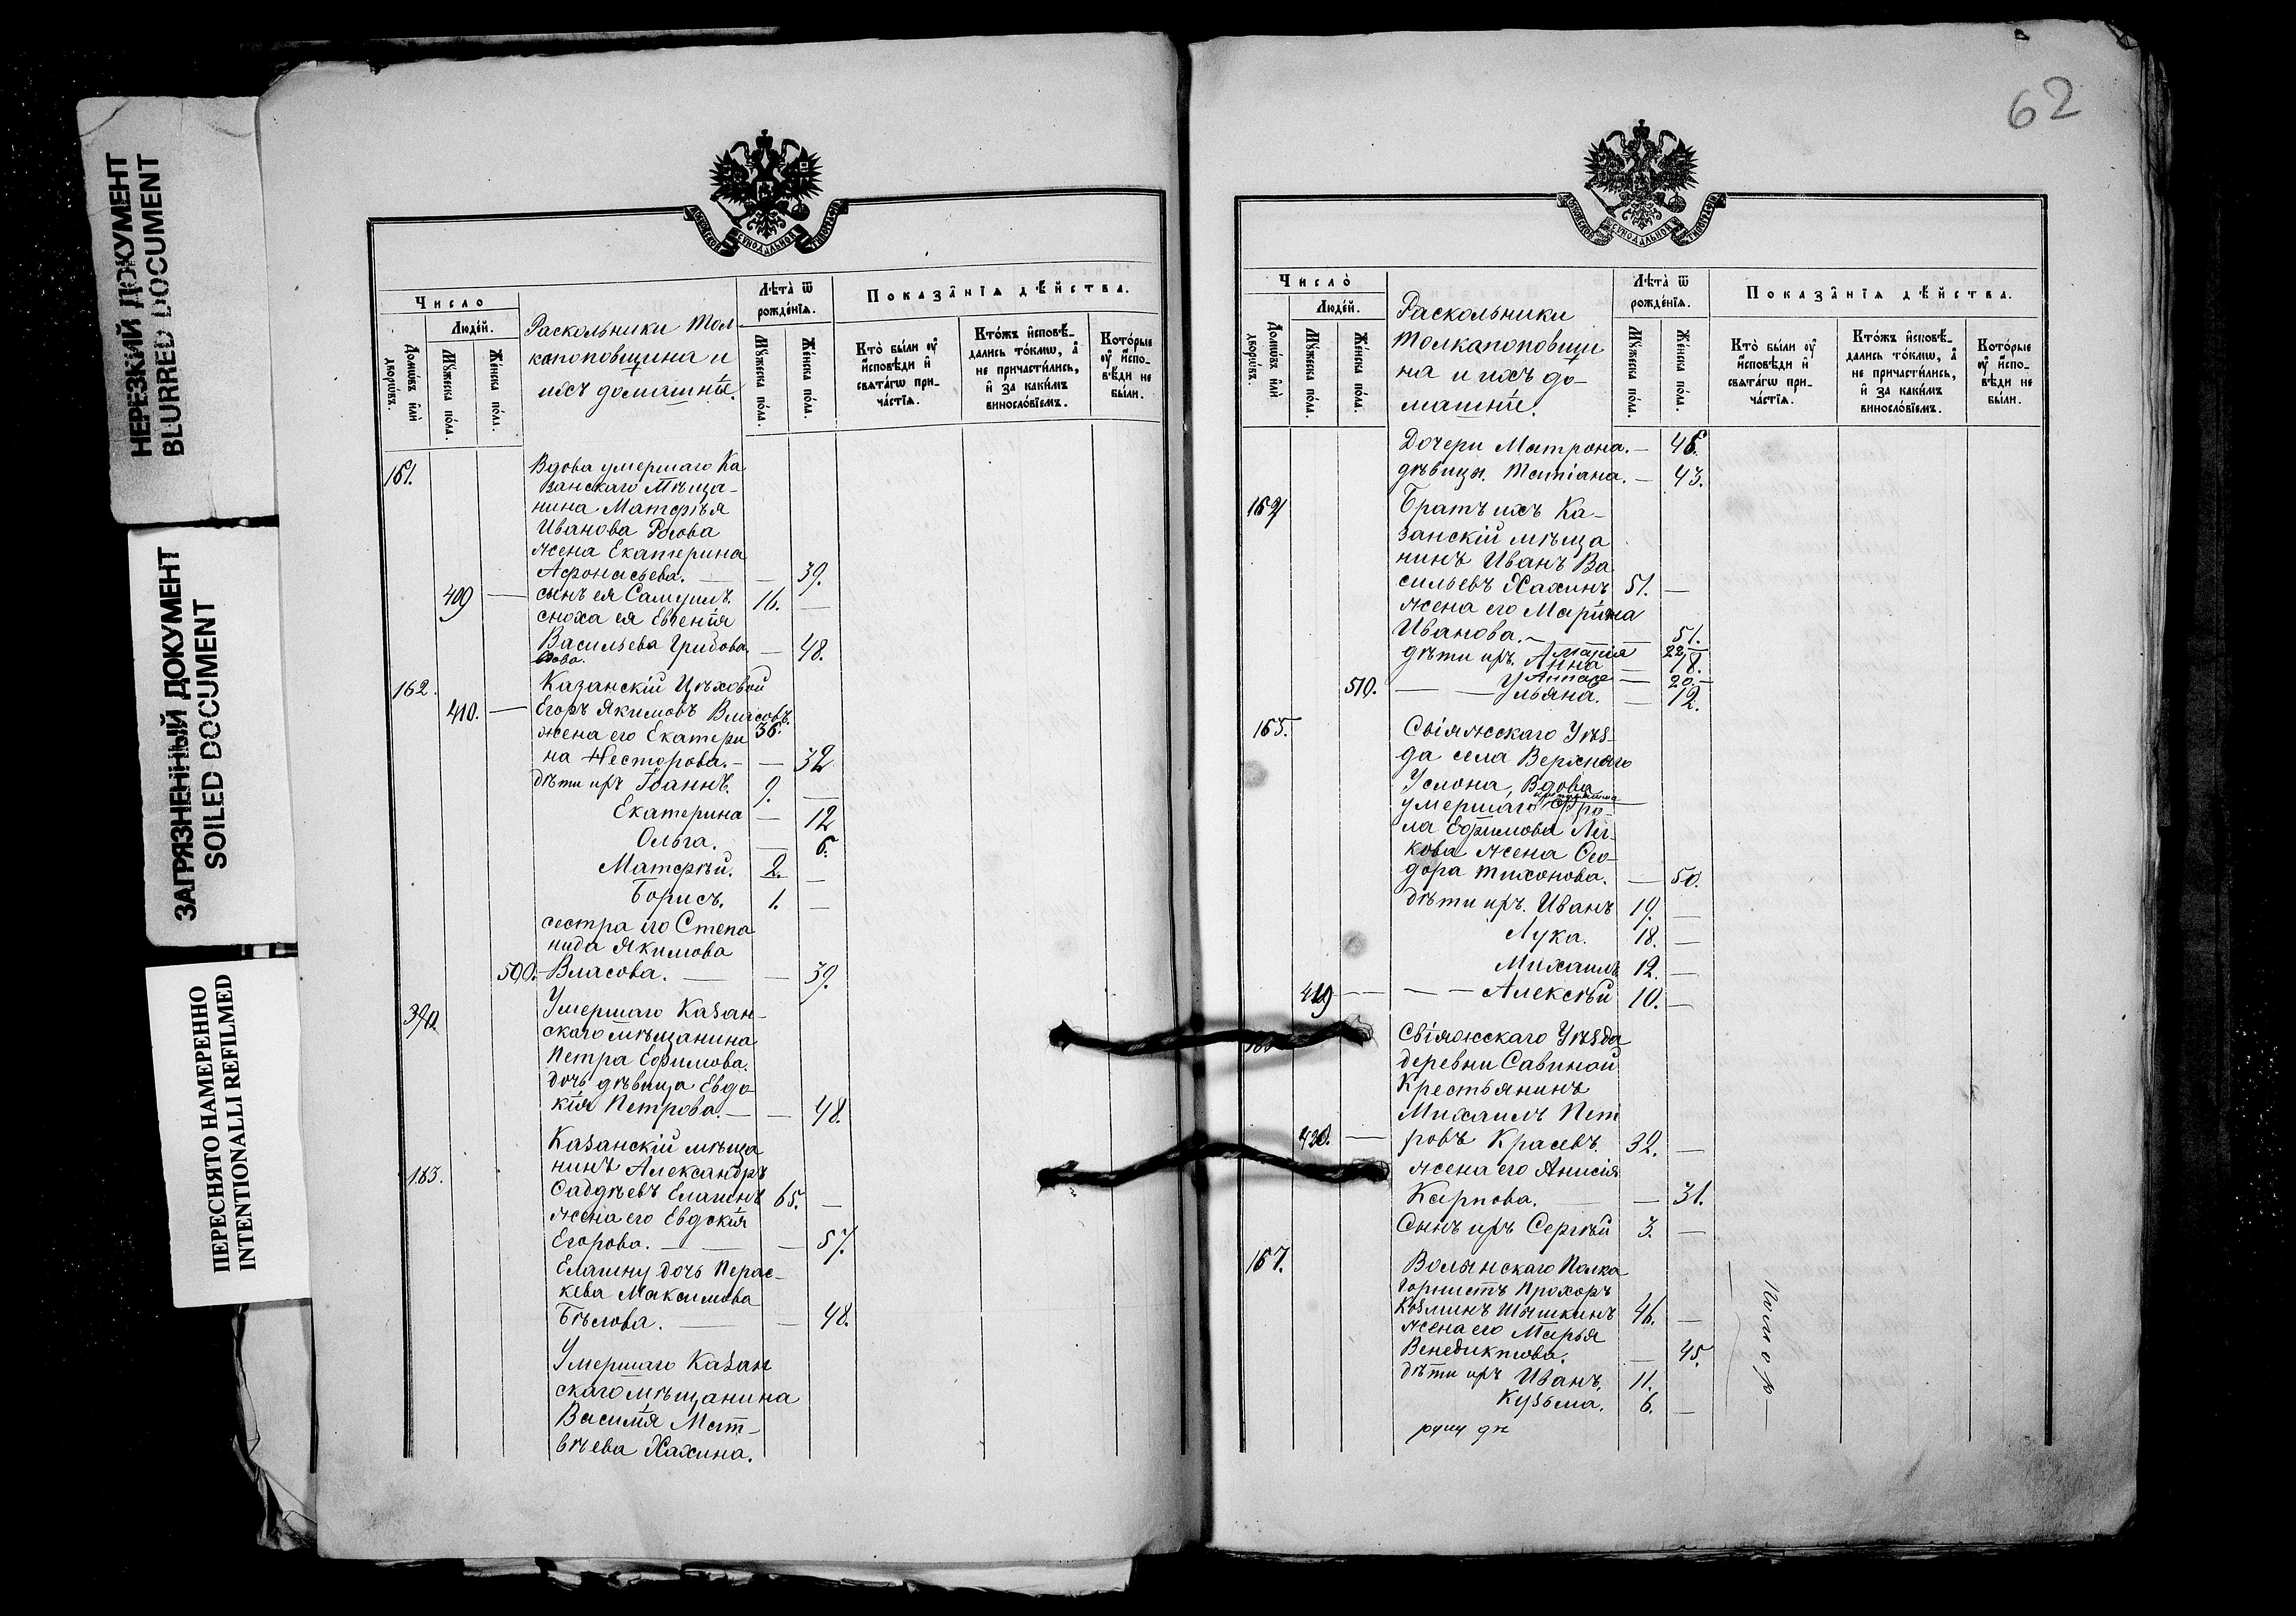 НЕРЕЗКИЙ ДОКУМЕНТ
BLURRED DOCUMENT
ЗАГРЯЗНЕННЫЙ ДОКУМЕНТ
SOILED DOCUMENT
ПЕРЕСНЯТО НАМЕРЕННО
INTENTIONALLI REFILMED
Число
Людей.
Домѡвъ и҆лѝ дворѡ́въ.
Мꙋ́жеска по́ла.
Же́нска по́ла.
Раскольники Тол-
капоповщина и
ихъ домашніе.
Лѣ́та ѿ рожде́нїѧ.
Мꙋ́жеска по́ла.
Же́нска по́ла.
Показа̑нїѧ дѣ́йства.
Кто̀ бы́ли ᲂу҆ и҆сповѣ́ди и҆ свѧта́гѡ при-ча́стїѧ.
Кто́жъ и҆сповѣ́-дались то́кмѡ, а҆ не причасти́лись, и҆ за каки́мъ виносло́вїемъ.
Кото́рые ᲂу҆ и҆спо-вѣ́ди не бы́ли.
161.
Вдова умершаго Ка
занскаго Мѣща-
нина Матфѣя
Иванова
жена Екатерина
Афонасьева. — — 39.
409 — сынъ ея Самуилъ. 16. —
сноха ея Евгенія
Васильева Грибова. — 48.
вдова.
162.
Казанскій Цѣховой
410. — Егоръ Якимовъ Власовъ. 36.
жена его Екатери
на Несторова. — — 32
дѣти ихъ Іоаннъ. 9. —
Екатерина — 12
Ольга. — 6.
Матфѣй. 2. —
Борисъ. 1. —
сестра его Степа
нида Якимова
500. — Власова. — — 39.
Умершаго Казан-
скаго мѣщанина
Петра Ефимова.
дочь дѣвица Евдо
кія Петрова. — — 48.
Казанскій мѣща
163.
нинъ Александръ
Елагинъ 65. —
жена его Евдокія
Егорова. — — 57.
Елагину дочь Перас-
кева Максимова
Бѣлова. — — 48.
Умершаго Казан
скаго мѣщанина
Василія Мат-
вѣева Хахина.
62
Число̀
Людей.
Домѡвъ и҆лѝ дворѡ́въ.
Мꙋ́жеска по́ла.
Же́нска по́ла.
Раскольники
толкапоповщи
на и ихъ до-
машніе.
Лѣ́та ѿ рожде́нїѧ.
Мꙋ́жеска по́ла.
Же́нска по́ла.
Показа̑нїѧ дѣ́йства.
Кто̀ бы́ли ᲂу҆ и҆сповѣ́ди и҆ свѧта́гѡ при-ча́стїѧ.
Кто́жъ и҆сповѣ́-дались то́кмѡ, а҆ не причасти́лись, и҆ за каки́мъ виносло́вїемъ.
Кото́рые ᲂу҆ и҆спо-вѣ́ди не бы́ли.
Дочери Матрона. — 46.
дѣвицы. Татіана. — 43.
Братъ ихъ Ка-
занскій мѣща
нинъ Иванъ Ва
сильевъ Хахинъ 51. —
жена его Марина
Иванова. — — 51.
дѣти ихъ. Марія — 22
Анна — 18.
20.
510. — — Ульяна. — 12.
165.
Свіяжскаго Уѣз-
да села Верхняго
Услона, Вдова
умершаго Фро-
ла Ефимова
кова жена Фео-
дора Тихонова. — 50.
дѣти ихъ. Иванъ 19. —
Лука. 18. —
Михаилъ 12. —
419 — — Алексѣй 10. —
Свіяжскаго Уѣзда
деревни Савиной
Крестьянинъ
Михаилъ Пет
420. — ровъ Красевъ. 32. —
жена его Анисія
Карпова. — — 31.
Сынъ ихъ Сергѣй 3. —
167.
Волынскаго Полка
Горнистъ Прохоръ
Козминъ Шишкинъ 46. —
жена его Марья
Венедиктова. — 45.
дѣти ихъ Иванъ. 11.
Кузьма. 6. —
Помор.